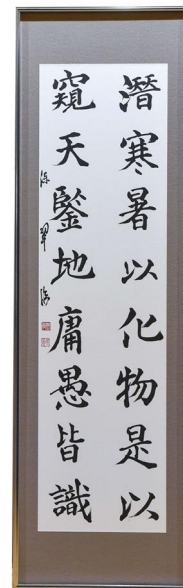 潛寒暑以化物是以
窺天鑒地庸愚皆識